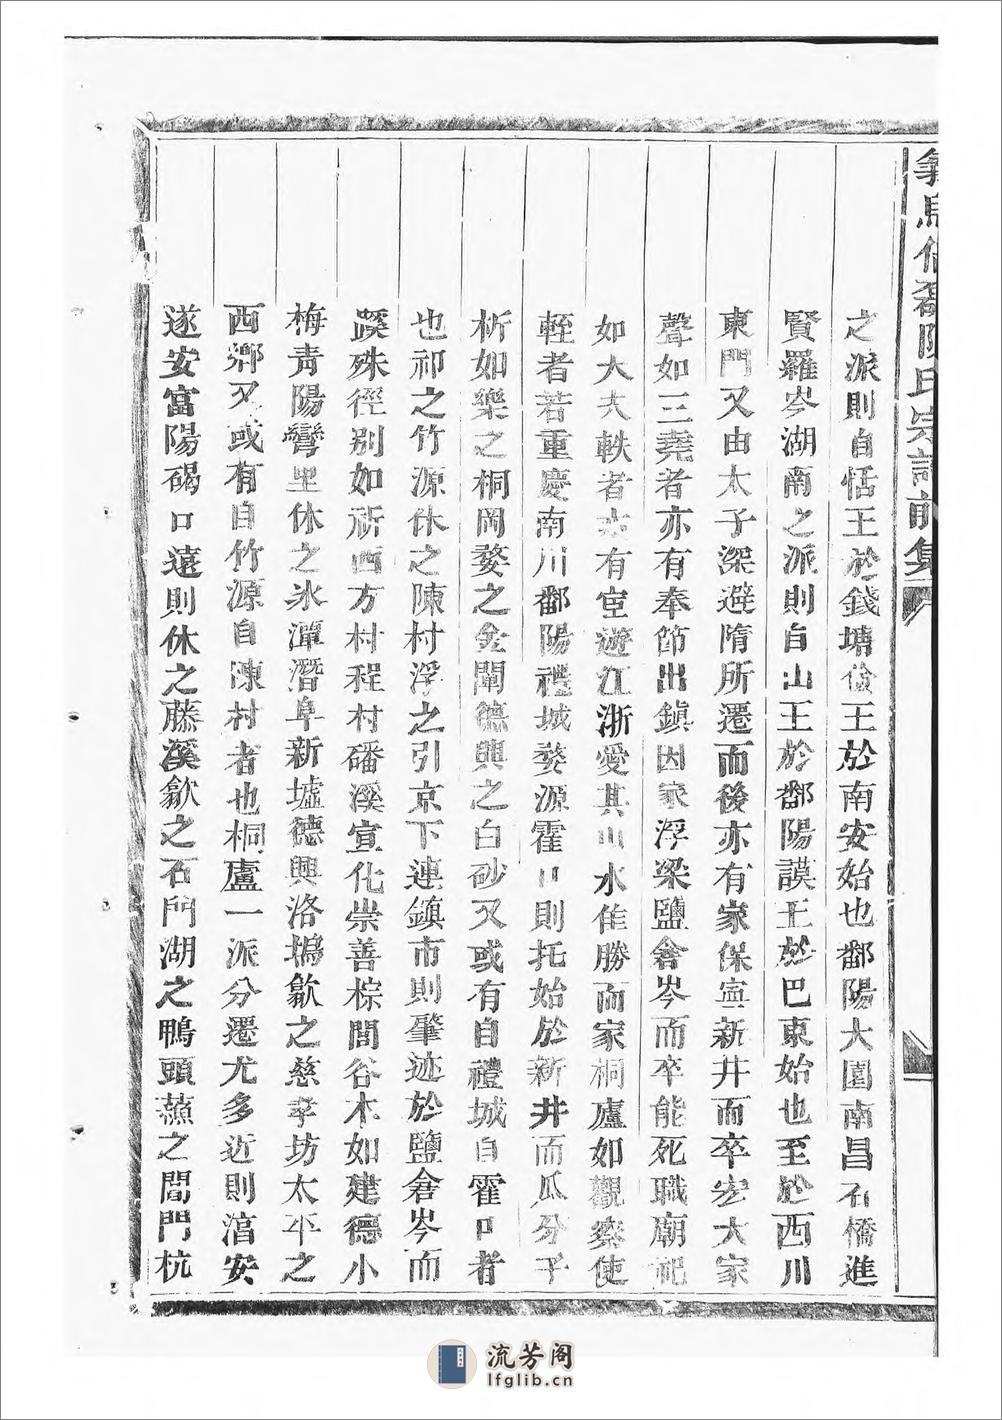 義烏倍磊陳氏宗譜前集
之派則自恬王於錢塘儉王於南安始也鄱陽大園南昌石橋進
賢羅岑湖南之派則自山王於鄱陽謨王於巴東始也至於西川
東門又由太子深避隋所遷而後亦有家保寧新井而卒宏大家
聲如三堯者亦有奉節出鎮因家浮梁鹽倉岑而卒能死職廟祀
如大夫軼者亦有宦遊江浙愛其山水佳勝而家桐廬如觀察使
輊者若重慶南川鄱陽禮城婺源霍口則托始於新井而瓜分子
析如樂之桐岡婺之金闈德興之白砂又或有自禮城自霍口者
也祁之竹源休之陳村浮之引京下連鎮市則肇迹於鹽倉岑而
蹊殊徑别如祈西方村程村磻溪宣化崇善棕閭谷木如建德小
梅青陽彎里休之氷潭潛阜新墟德興洛塢歙之慈孝坊太平之
西鄉又或有自竹源自陳村者也桐廬一派分遷尤多近則湻安
遂安富陽碣口遠則休之藤溪歙之石門湖之鴨頭蘇之閶門杭
流芳阁
lfglib.cn